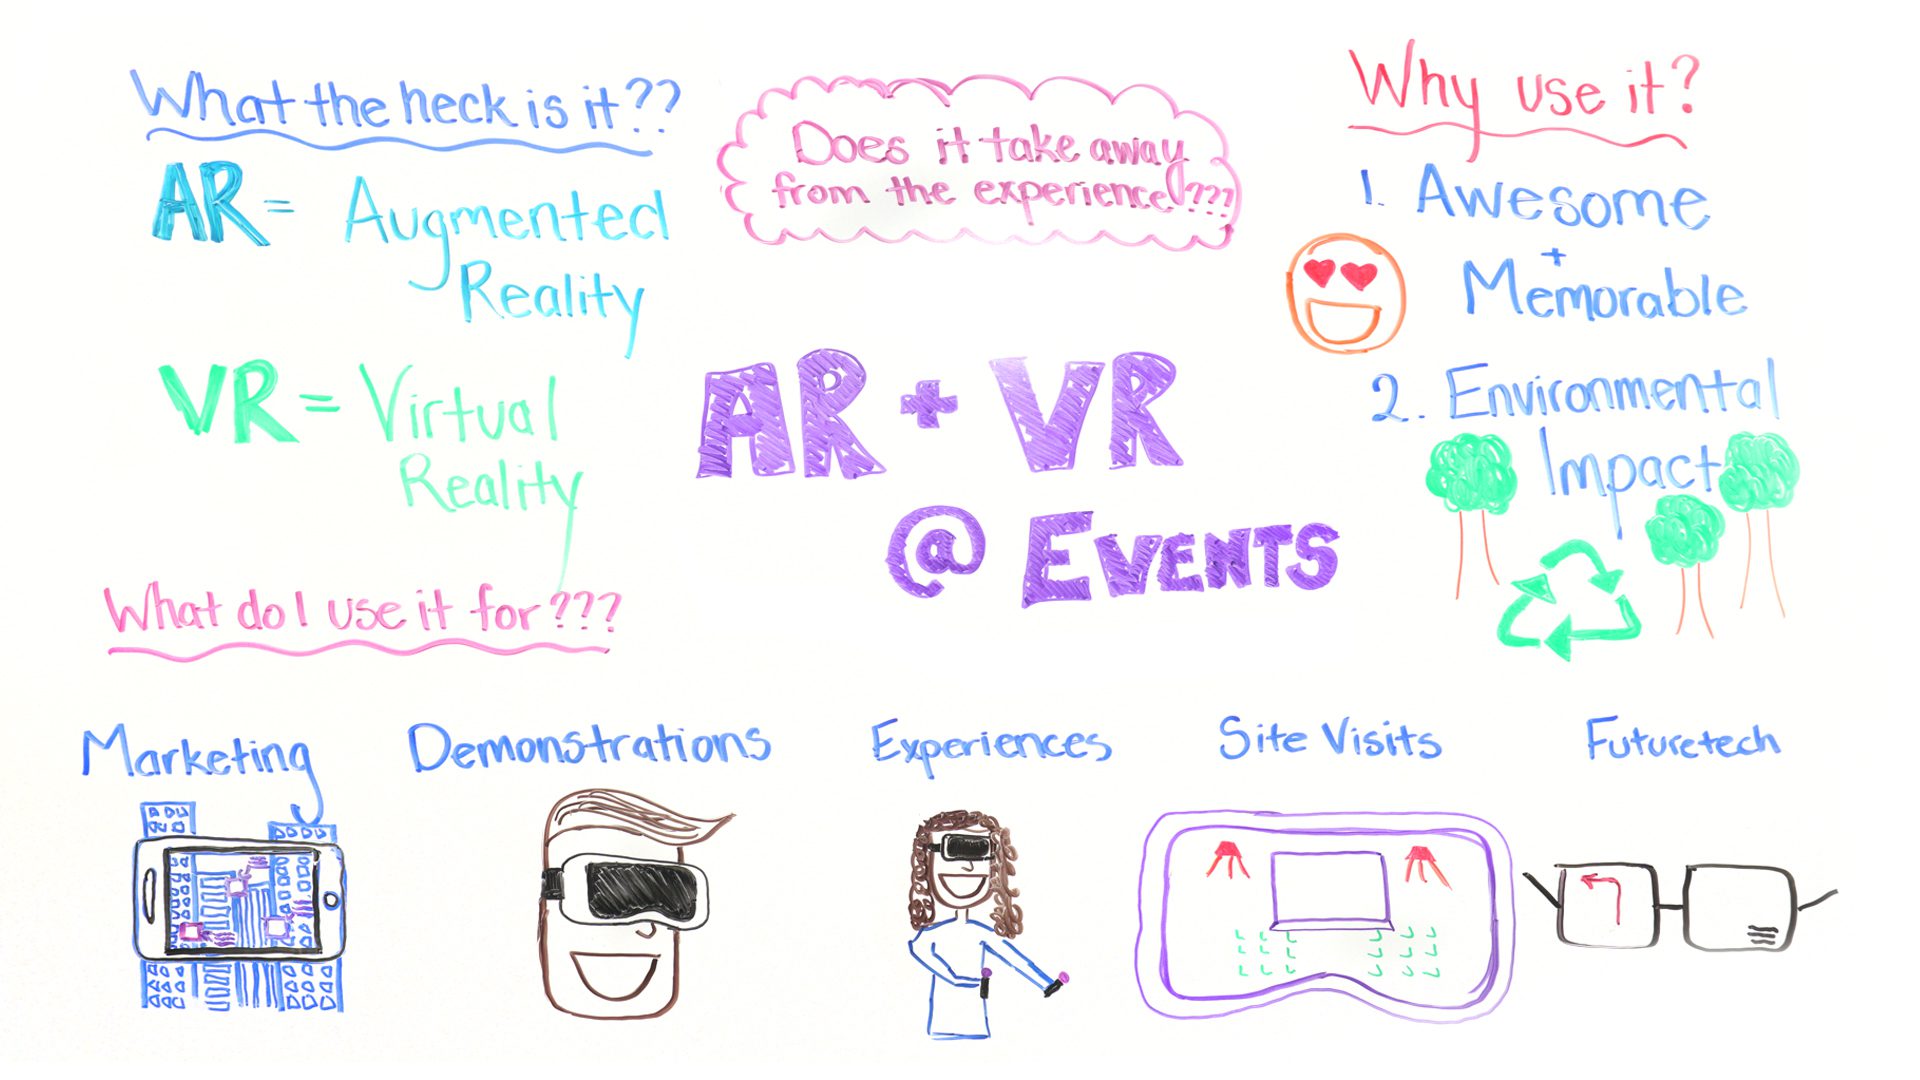 What the heck is it??
AR = Augmented
Reality
VR = Virtual
Reality
What do I use it for???
Does it take away
from the experience???
AR + VR
@ EVENTS
Why use it?
1. Awesome
+
Memorable
2. Environmental
Impact
Marketing
Demonstrations
Experiences
Site Visits
Futuretech